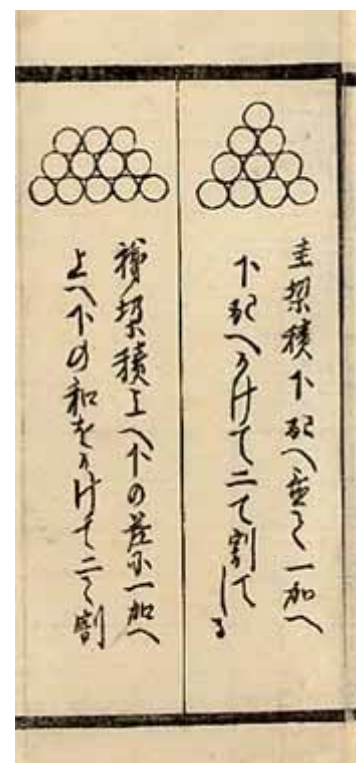 圭垜積下へ一加へ
下へかけて二て割てしる
梯垜積上へ下の差に一加へ
上へ下の和をかけて二て割